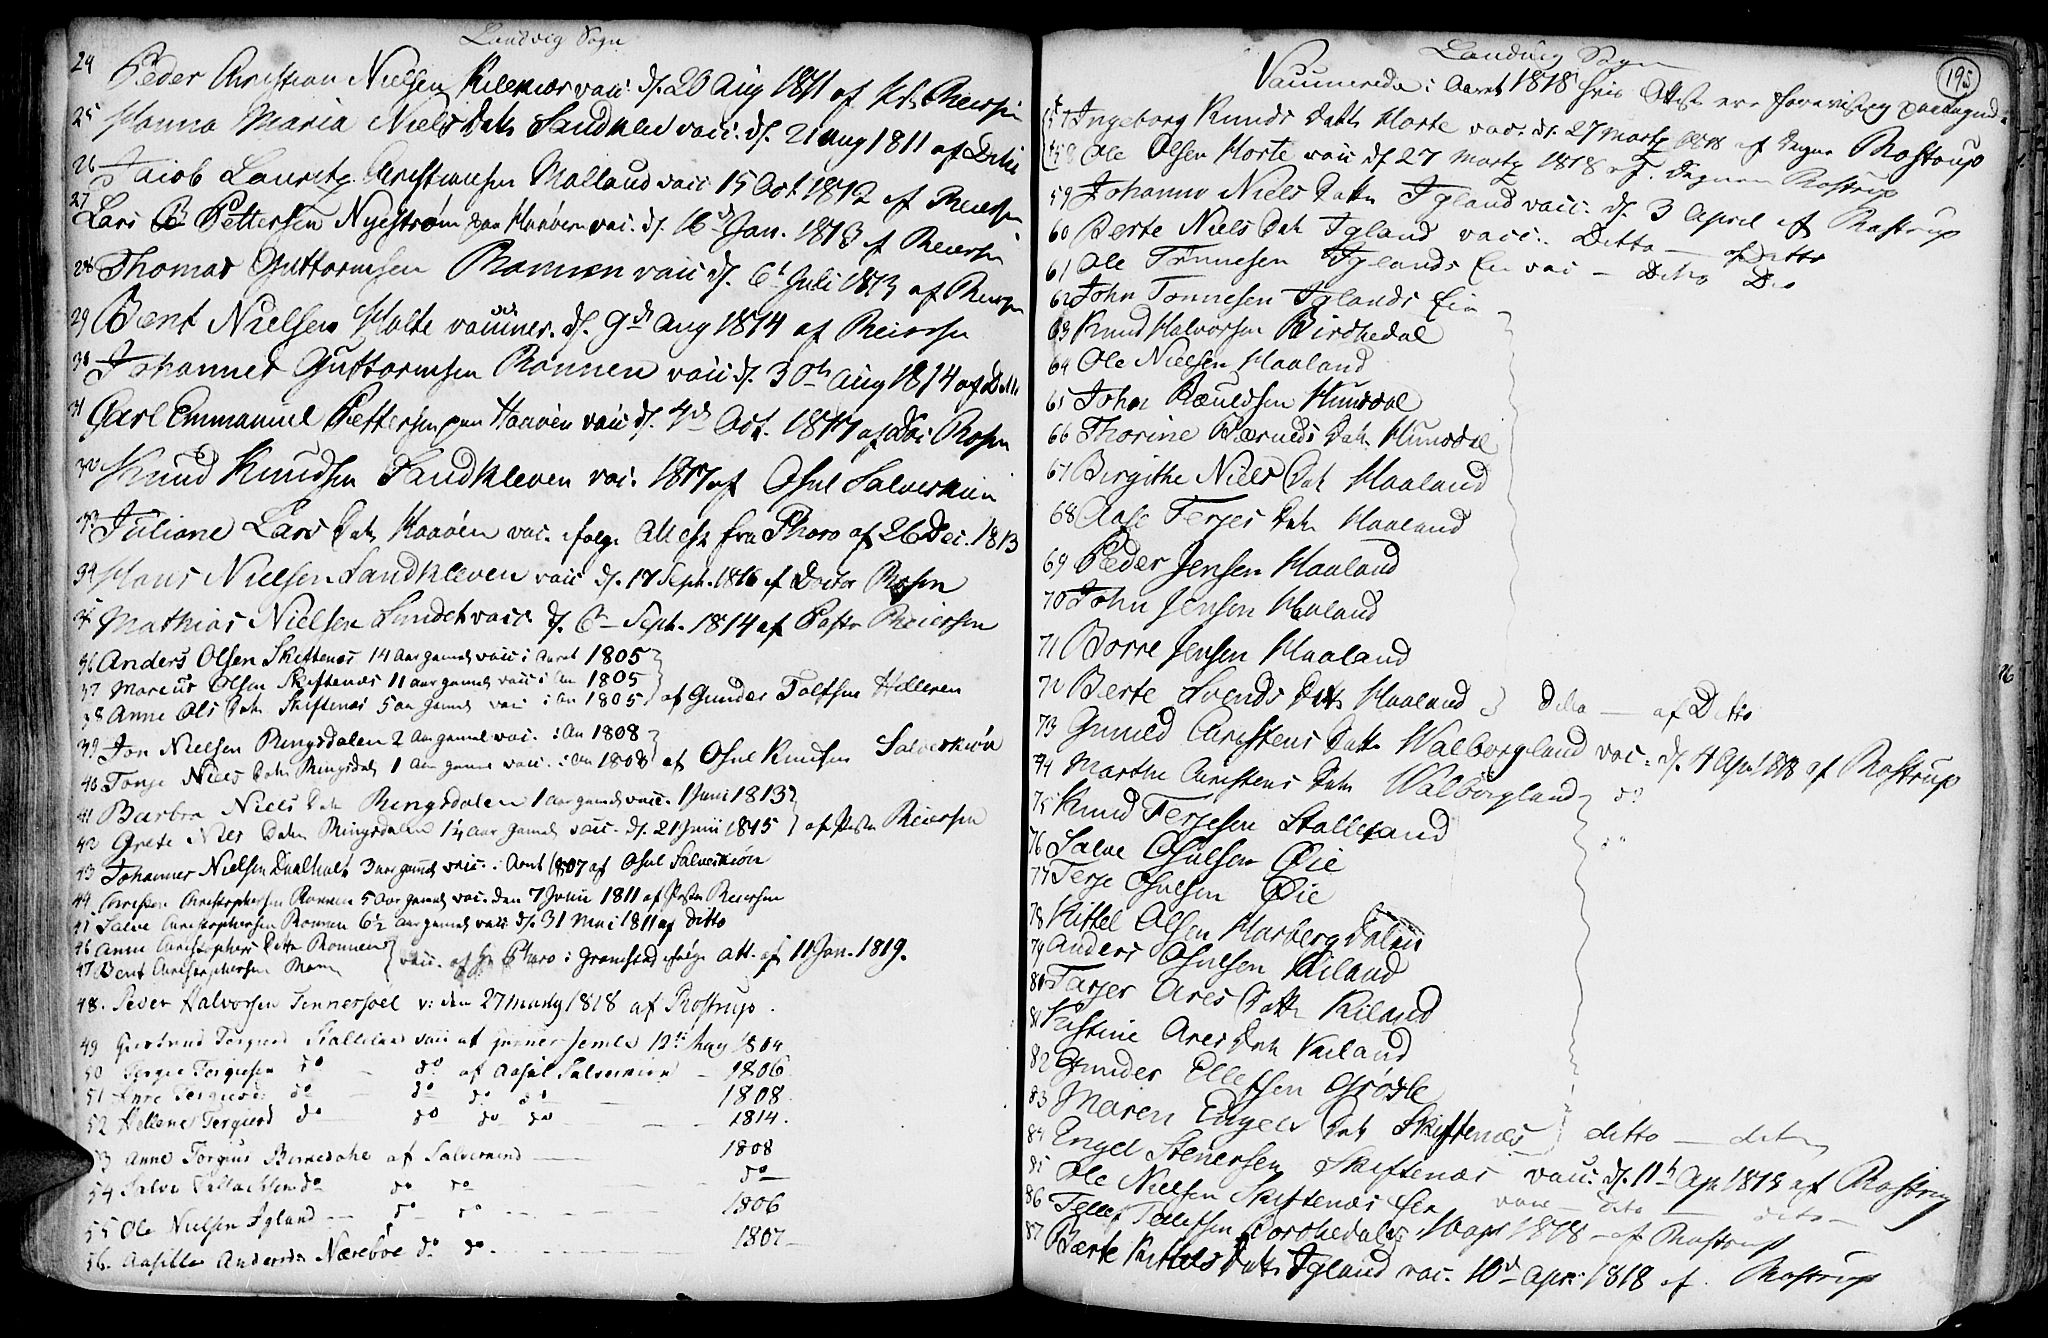 Landvig Sogn
24 Peder Christian Nielsen Kilekiær vacc: d. 20 Aug 1811 af Reiersen
25 Hanna Maria Niels Datt Sandklev vacc. d. 21 Aug 1811 af Ditto
26 Jacob Lauretz Christiansen Molland vacc 15 Oct 1812 af Reiersen
27 Lars Pettersen Nyestrøm paa Haaøen vac. d. 16 Jan. 1813 af Reiersen
28 Thomas Guttormsen Rønnen vacc d. 6t Juli 1813 af Reiersen
29 Bent Nielsen Holte d. 9de Aug 1814 af Reiersen
30 Johannes Guttormsen Rønnen vacc d. 30te Aug 1814 af Ditto
31 Carl Emmanuel Pettersen paa Haaøen vacc d. 4de Oct. 1817 af Doc Rosen
32 Knud Knudsen Sandkleven vac. 1817 af Osul Salveskiøn
33 Juliane Lars Dat Haaøen vac. ifølge Attest fra Thoro af 26 Dec. 1813
34 Hans Nielsen Sandkleven vacc d. 17 Sept. 1816 af Doctor Rosen
35 Mathias Nielsen Sundet vacc. d. 6 Sept. 1814 af Pastor Reiersen
36 Anders Olsen Skiftenæs 14 Aar gamel vacc i Aaret 1805
37 Marcus Olsen Skiftenæs 11 aar gamel vacc i An 1805
38 Anne Ols Dat Skiftenæs 5 aar gamel vacc i An 1805 af Gunder Tolfsen Hilleren
39 Jon Nielsen Ringsdalen 2 Aar gamel vac. i An 1808
40 Tonje Niels Dat Ringsdal 1 Aar gamel vacc. i An 1808 af Osul Knudsen Salveskiøn
41 Barbra Niels Dat Ringsdalen 1 aar gamel vacc. 1 Juni 1813
42 Grete Niels Datter Ringsdalen 1¼ aar gamel vacc. d. 21 Juni 1815 af Pastor Reiersen
43 Johannes Nielsen Dalholt 3 aar gamel vacc. i Aaret 1807 af Osul Salveskiøn
44 Christen Christophersen Rønnen 5 Aar gamel vac. den 7 Junii 1811 af Pastor Reiersen
45 Salve Christophersen Rønnen 6½ aar gamel vacc d. 31 Mai 1811 af Ditto
46 Anne Christophers Datter Rønnen
47 Bent Christophersen Rønn vacc. af Hr Thoro i Gromstad ifølge Att. af 11 Jan. 1819.
48. Peder Halvorsen Tønnersoel v: den 27 Marty 1818 af Rostrup.
49 Tergiesd vacc af 12te May 1804
50 Tergie Tergiesen do – do af Aasul Salveskiøn – 1806
51 Anne Tergiesd do – do do do – 1808
52 Hellene Tergiesd do – do do do – 1814.
53 Anne Torgius Birkedahl af Salveskiøn – 1808
54 Salve do do do – do
55 Ole Nielsen Igland – do do – 1806
56. Aasille Andersdr Næreboe do do – 1807
195
Landvig Sogn
Vaccinerede i Aaret 1818 hvis Attester ere
57 Ingeborg Knuds Datt Horte vacc. d. 27 Martz 1818 af Degnen Rostrup
58 Ole Olsen Horte vacc d. 27 Martz 1818 af Degnen Rostrup
59 Johanne Niels Datt Igland vacc. d. 3 April af Rostrup
60 Berte Niels Dat Igland vacc. Ditto – af Ditto
61 Ole Tønnesen Iglands Eie vac – Ditto Do
62 John Tønnesen Iglands Eie
63 Knud Halvorsen Birkedal
64 Ole Nielsen Haaland
65 John Hunsdal
66 Thorine Dat Hunsdal
67 Birgithe Niels Dat Haaland
68 Aase Terjes Dat Haaland
69 Peder Jensen Haaland
70 John Jensen Haaland
71 Borre Jensen Haaland
72 Berte Svends Datt Haaland Ditto – af Ditto
73 Gunild Christens Datt Walborgland vac. d. 4 Apr 1818 af Rostrup
74 Marthe Christens Dat Walborgland do
75 Knud Terjesen Stalleland
76 Salve Osulsen Øie
77 Terje Osulsen Øie
78 Kittel Olsen Harbergdalen
79 Anders Osulsen Kiland
80 Tarjer Ares Datt Kiland
81 Kistine Ares Dat Kiland
82 Gunder Ellefsen Grødle
83 Maren Engels Dat Skiftenæs ditto – ditto
84 Engel Stenersen Skiftenæs vacc. d. 11te Apr 1818 af Rostrup
85 Ole Nielsen Skiftenæs Eie vacc – dito – dito –
86 Tellef Tellefsen 10 apr 1818 – af Rostrup
87 Berte Kittels Dat Igland vac. 10de Apr: 1818 af. Rostrup